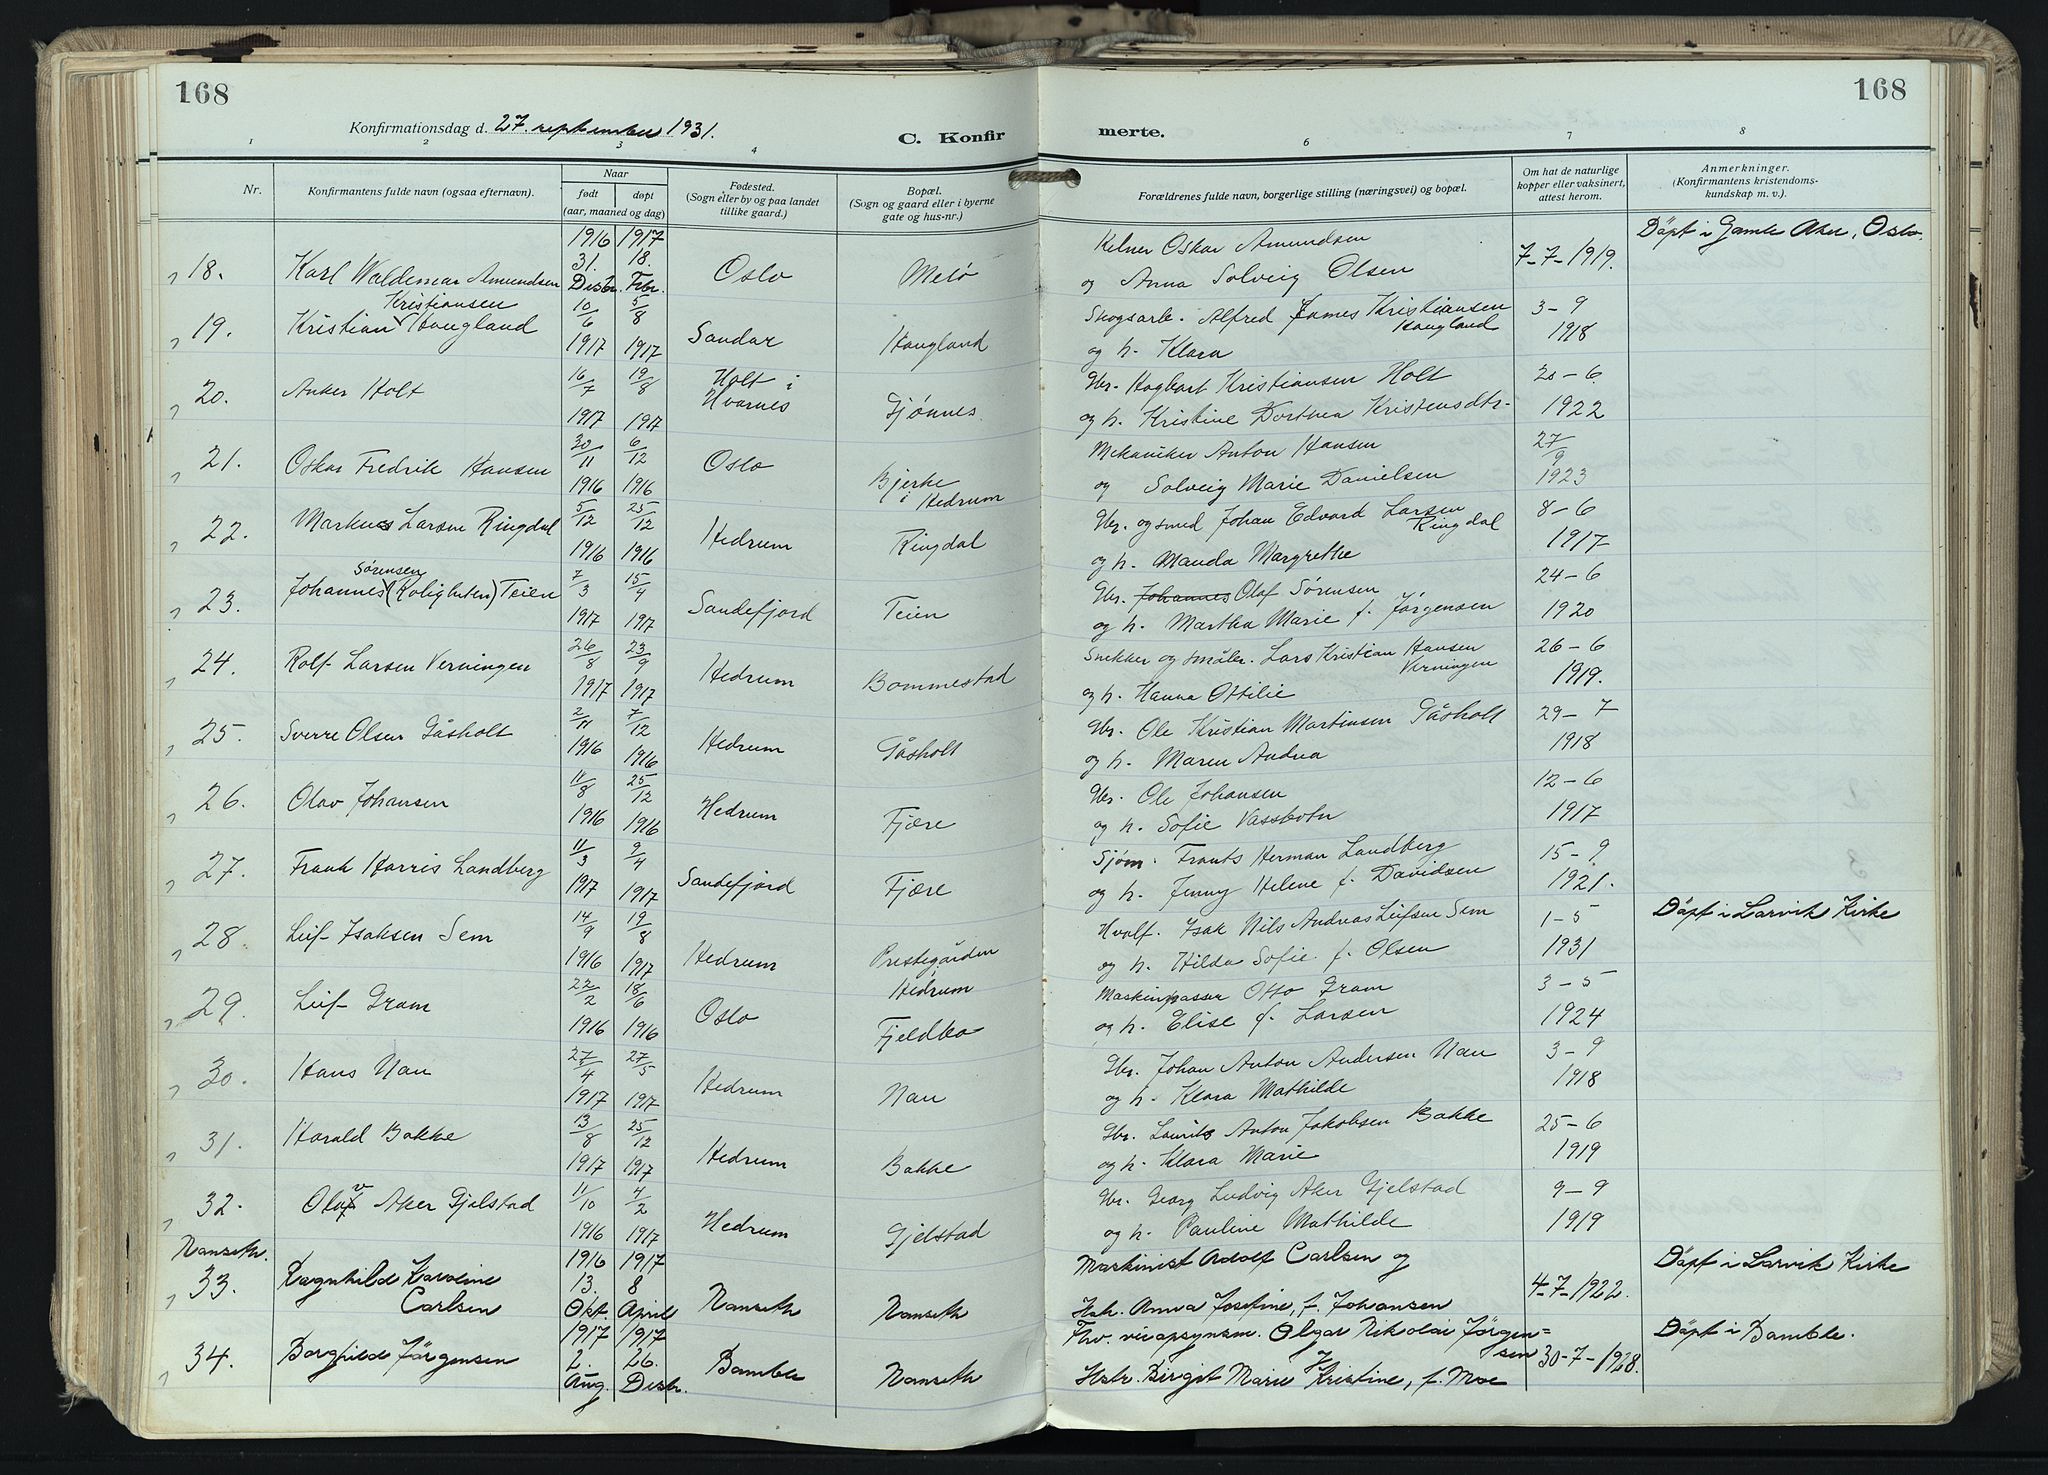 168
168
Konfirmationsdag d. 27. september 1931.
C. Konfir
merte.
1 2 3 4 6 7 8
Nr.
Konfirmantens fulde navn (ogsaa efternavn).
Naar
født
døpt
(aar, maaned og dag)
Fødested.
(Sogn eller by og paa landet
tillike gaard.)
Bopæl.
(Sogn og gaard eller i byerne
gate og hus-nr.)
Forældrenes fulde navn, borgerlige stilling (næringsvei) og bopæl.
Om hat de naturlige
kopper eller vaksinert,
attest herom.
Anmerkninger.
(Konfirmantens kristendoms-
kundskap m. v.).
1916 1917 Kelner Oskar Amundsen Döpt i Gamle Aker, Oslo.
18. Karl Waldemar Amundsen 31. Desbr. 18. Febr. Oslo Melö og Anna Solveig Olsen 7-7-1919.
Kristiansen
19. Kristian Haugland 10/6 1917 5/8 1917 Sandar Haugland Skogsarb. Alfred James Kristiansen 3-9
Haugland
og h. Klara 1918
20. Anker Holt 16/7 1917 19/8 1917 Holt i Hvarnes Gjønnes Gbr. Hagbart Kristiansen Holt 20-6
og h. Kristine Dorthea Kristensdtr. 1922
21. Oskar Fredrik Hansen 30/11 1916 6/12 1916 Oslo Bjerke i Hedrum Mekaniker Anton Hansen 27/9
og Solveig Marie Danielsen 1923
22. Markus Larsen Ringdal 5/12 1916 25/12 1916 Hedrum Ringdal Gbr. og smed Johan Edvard Larsen 8-6
Ringdal
og h. Manda Margrethe 1917
Sørensen
23. Johannes (Roligheten) Teien 7/3 1917 15/4 1917 Sandefjord Teien Gbr. Johannes Olaf Sørensen 24-6
og h. Martha Marie f. Jørgensen 1920
24. Rolf Larsen Verningen 26/8 1917 23/9 1917 Hedrum Bommestad Snekker og småbr. Lars Kristian Hansen 26-6
Verningen
og h. Hanna Ottilie 1919.
25. Sverre Olsen Gåsholt 2/11 1916 7/12 1916 Hedrum Gåsholt Gbr. Ole Kristian Martinsen Gåsholt 29-7
og h. Maren Andrea 1918
26. Olav Johansen 11/8 1916 25/12 1916 Hedrum Fjære Gbr. Ole Johansen 12-6
og h. Sofie Vassbotn 1917
27. Frank Harris Landberg 11/3 1917 9/4 1917 Sandefjord Fjære Sjøm. Frants Herman Landberg 15-9
og h. Jenny Helene f. Davidsen 1921.
28. Leif Isaksen Sem 14/9 1916 19/8 1917 Hedrum Prestegården i Hedrum Hvalf. Isak Nils Andreas Leifsen Sem 1-5 Döpt i Larvik Kirke
og h. Hilda Sofie f. Olsen 1931
29. Leif Gram 22/2 1916 18/6 1916 Oslo Fjeldbo Maskinpasser Otto Gram 3-5
og h. Elise f. Larsen 1924
30. Hans Nau 27/4 1917 27/5 1917 Hedrum Nau Gbr. Johan Anton Andersen Nau 3-9
og h. Klara Mathilde 1918
31. Harald Bakke 13/8 1917 25/12 1917 Hedrum Bakke Gbr. Laurits Anton Jakobsen Bakke 25-6
og h. Klara Marie 1919
32. Olav Aker Gjelstad 11/10 1916 4/2 1917 Hedrum Gjelstad Gbr. Georg Ludvig Aker Gjelstad 9-9
og h. Pauline Mathilde 1919
Nanseth. 1916 1917 Maskinist Adolf Carlsen og Döpt i Larvik Kirke
33. Ragnhild Karoline 13. 8 4-7-1922.
Carlsen Okt. April Nanseth Nanseth Hstr. Anna Josefine, f. Johansen
1917 1917 Fhv. viceopsynsm. Olgar Nikolai Jörgen= Döpt i Bamble.
34. Borghild Jörgensen 2. 26. sen 30-7-1928.
Aug. Desbr. Bamble Nanseth Hstr. Birgit Marie Kristine, f. Moe